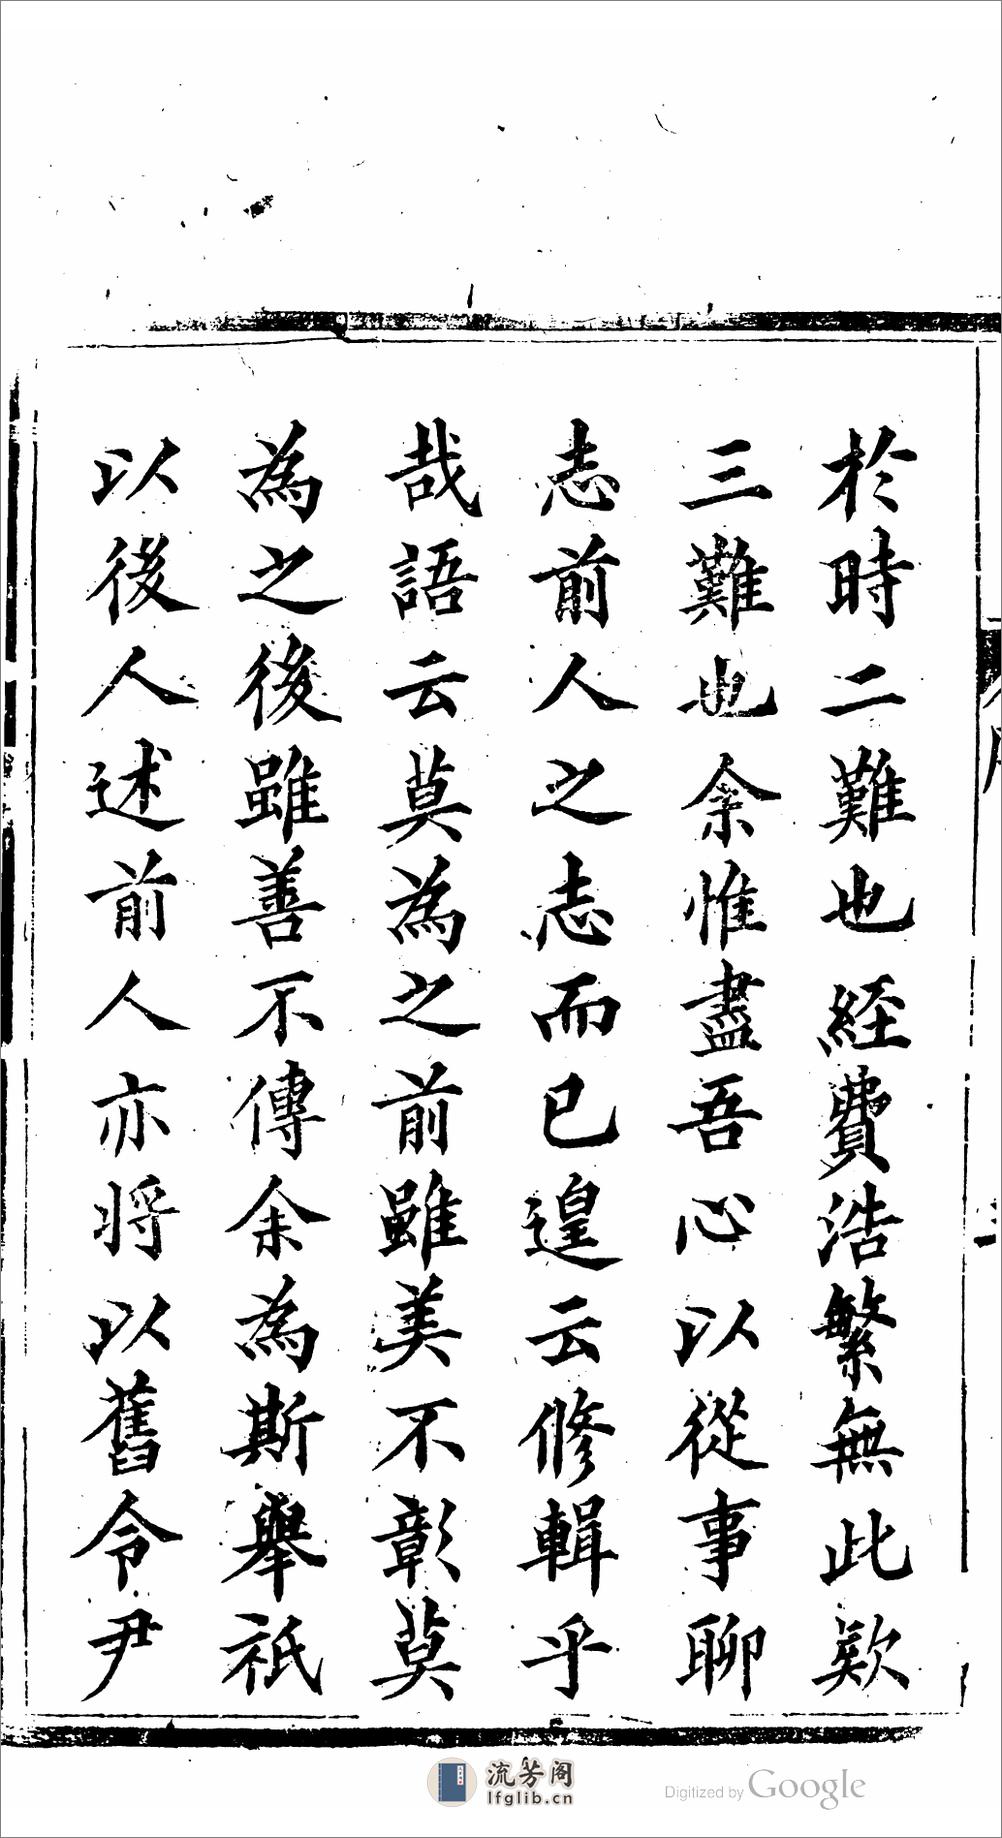 於時二難也経費浩繁無此欵
三難也余惟盡吾心以從事聊
志前人之志而已遑云修輯乎
哉語云莫為之前雖美不彰莫
為之後雖善不傳余為斯舉祇
以後人述前人亦将以舊令尹
流芳阁
lfglib.cn
Digitized by Google